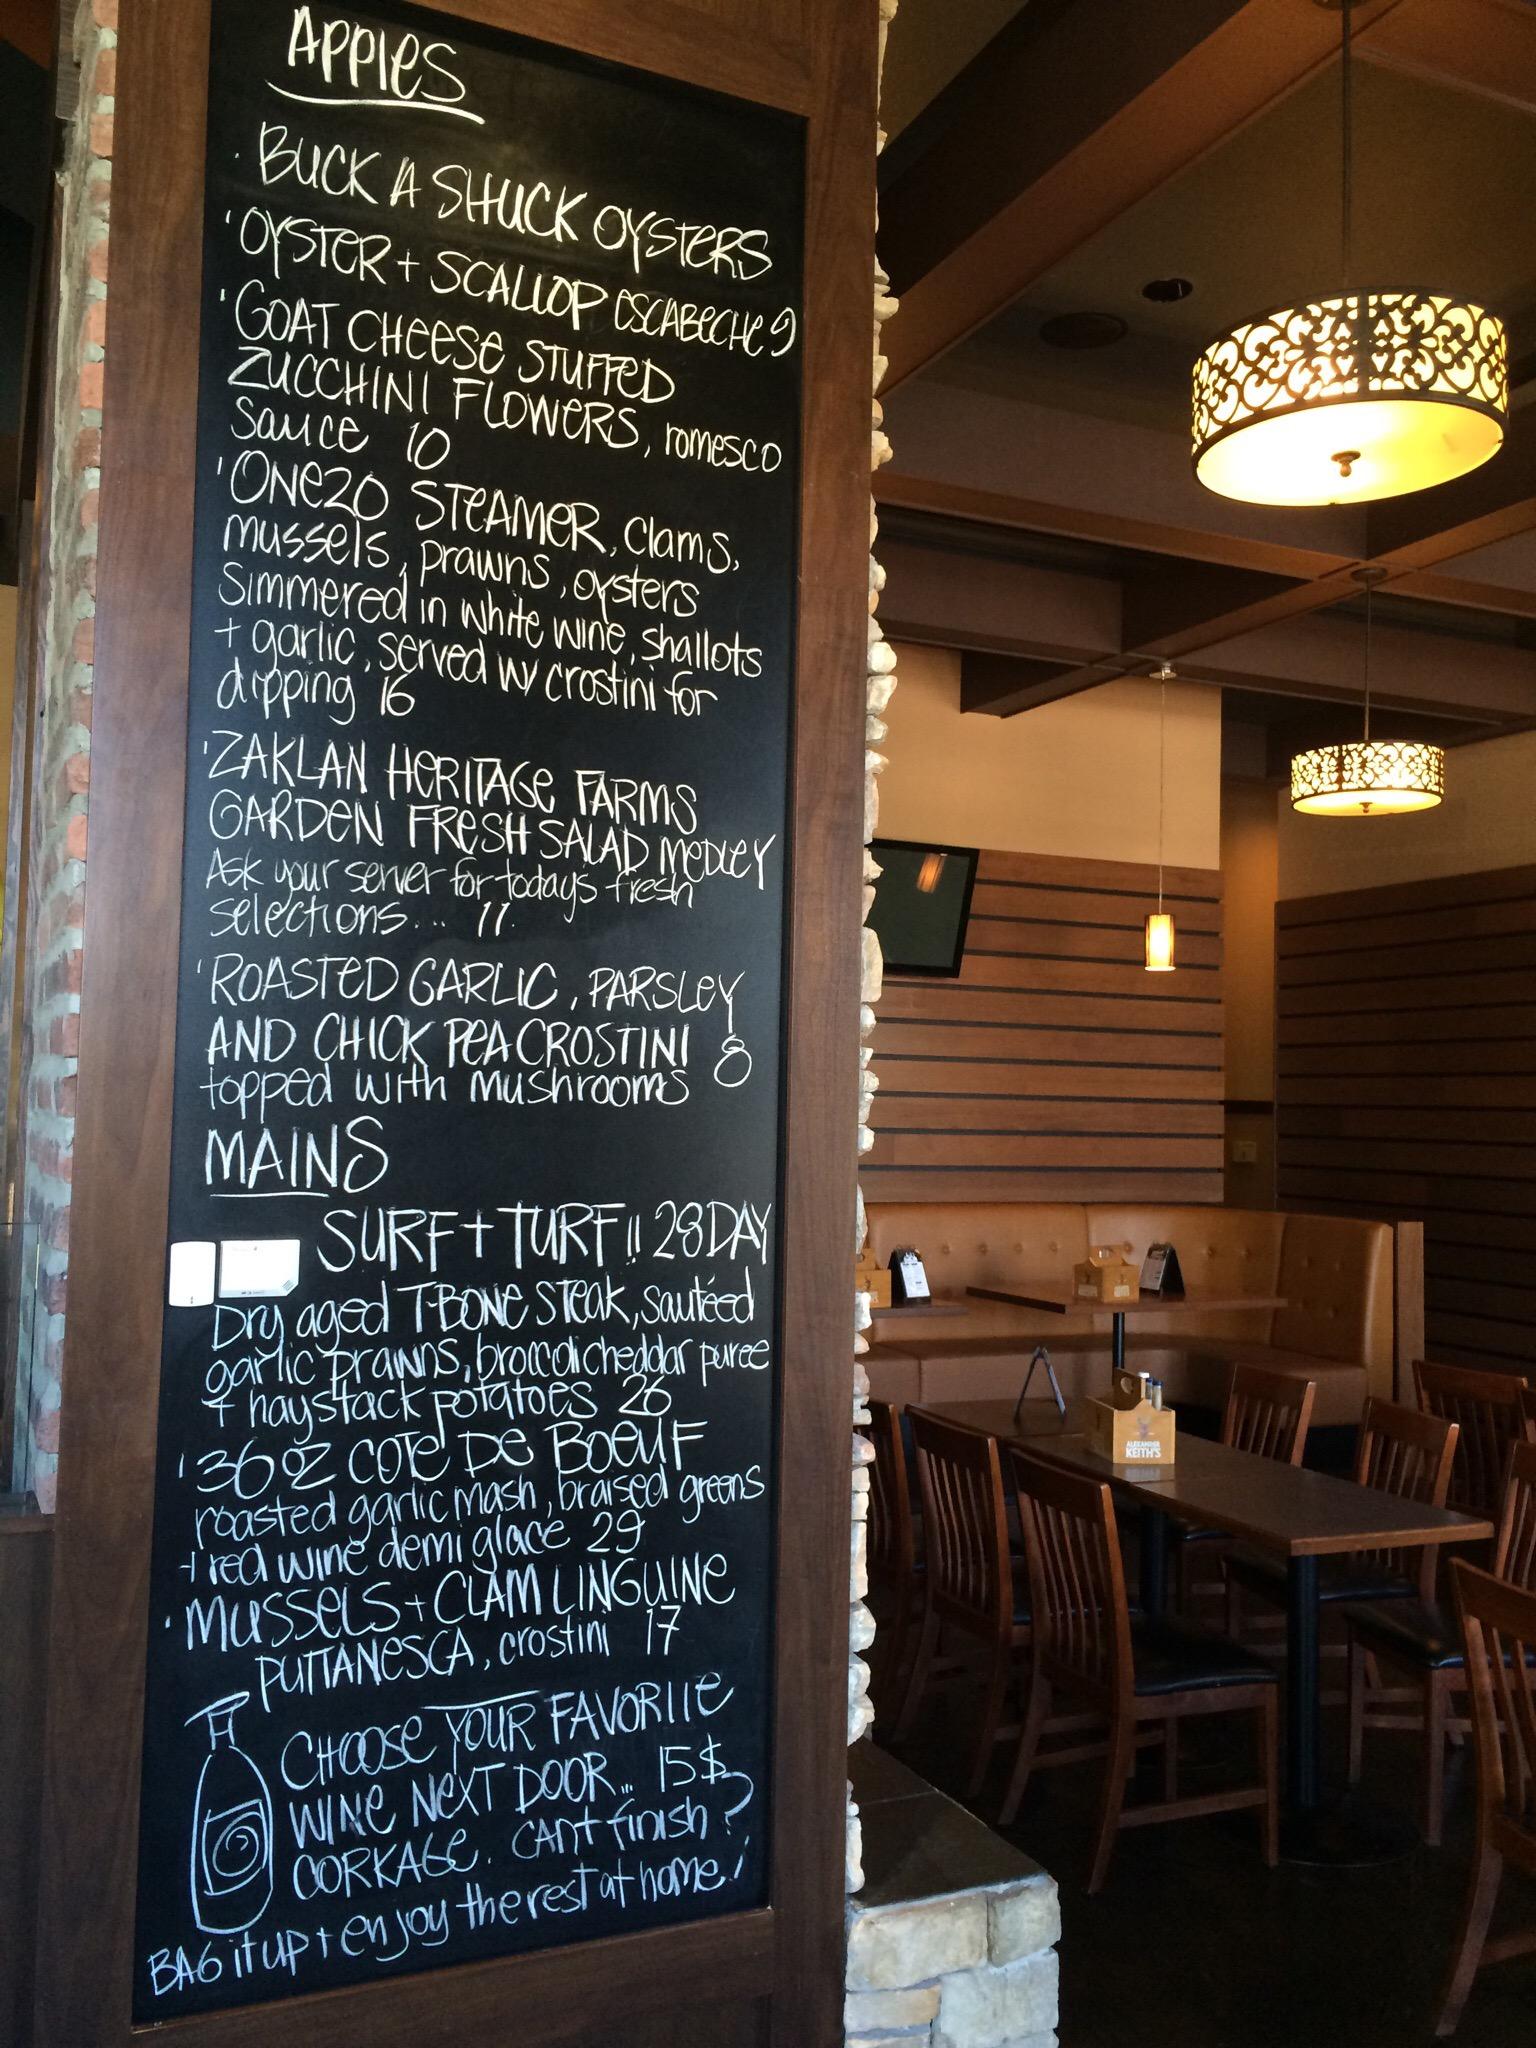 APPIES
· BUCK A SHUCK OYSTERS
' OYSTER + SCALLOP ESCABECHE 9
' GOAT CHEESE STUFFED
ZUCCHINI FLOWERS, romesco
sauce 10
' ONE20 STEAMER, clams,
mussels, prawns, oysters
simmered in white wine, shallots
+ garlic, served w/ crostini for
dipping 16
' ZAKLAN HERITAGE FARMS
GARDEN FRESH SALAD MEDLEY
Ask your server for todays fresh
selections... 11.
' ROASTED GARLIC, PARSLEY
AND CHICK PEA CROSTINI 8
topped with mushrooms
MAINS
SURF + TURF!! 28 DAY
Dry aged T-BONE STEAK, sautéed
garlic prawns, broccoli cheddar puree
+ haystack potatoes 26
' 36 oz COTE DE BOEUF
roasted garlic mash, braised greens
+ red wine demi glace 29
· MUSSELS + CLAM LINGUINE
PUTTANESCA, crostini 17
CHOOSE YOUR FAVORITE
WINE NEXT DOOR... 15$
CORKAGE. CANT finish?
BAG it up + enjoy the rest at home!
ALEXANDER
KEITH'S